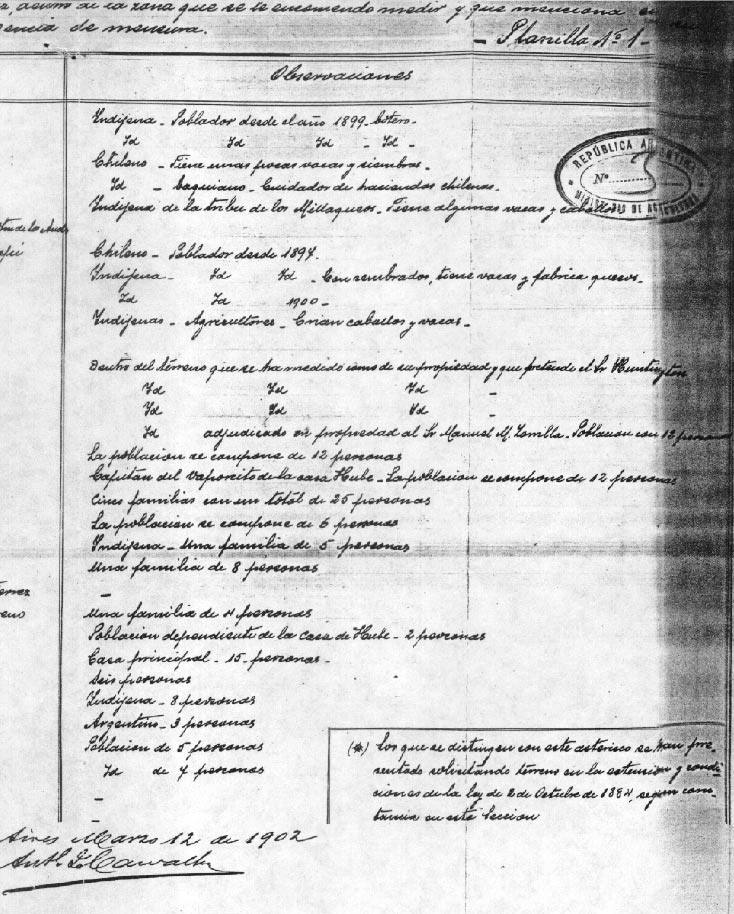 dentro de la zona que se le encomendó medir y que menciona en
gencia de mensura.
- Planilla Nº 1 -
Observaciones
Indígena - Poblador desde el año 1899 -
Id Id Id - Id -
Chileno - Tiene unas pocas vacas y siembras -
Id - Baquiano - Cuidador de haciendas chilenas -
Indígena de la tribu de los Millaqueos - Tiene algunas vacas y caballos
REPÚBLICA ARGENTINA
Nº
MINISTERIO DE AGRICULTURA
Chileno - Poblador desde 1894.
Indígena - Id Id - Con sembrados, tiene vacas y fabrica quesos -
Id Id 1900 -
Indígenas - Agricultores - Crian caballos y vacas -
Dentro del terreno que se ha medido como de su propiedad y que pretende el Sr Huntington
Id Id Id -
Id Id Id -
Id adjudicado en propiedad al Sr Manuel M. Zorrilla - Poblacion con 12 personas
La poblacion se compone de 12 personas
Capitan del vaporcito de la casa Hube - La poblacion se compone de 12 personas
Cinco familias con un total de 25 personas
La poblacion se compone de 6 personas
Indígena - Una familia de 5 personas
Una familia de 8 personas
-
Una familia de 4 personas
Poblacion dependiente de la casa de Hube - 2 personas
Casa principal - 15 - personas -
Seis personas
Indígena - 8 personas
Argentino - 3 personas
Poblacion de 5 personas
Id de 7 personas
-
-
(*) Los que se distinguen con este asterisco se han pre-
sentado solicitando terreno en la estension y condi-
ciones de la ley de 2 de Octubre de 1884, segun cons-
tancia en esta Seccion
Aires Marzo 12 de 1902